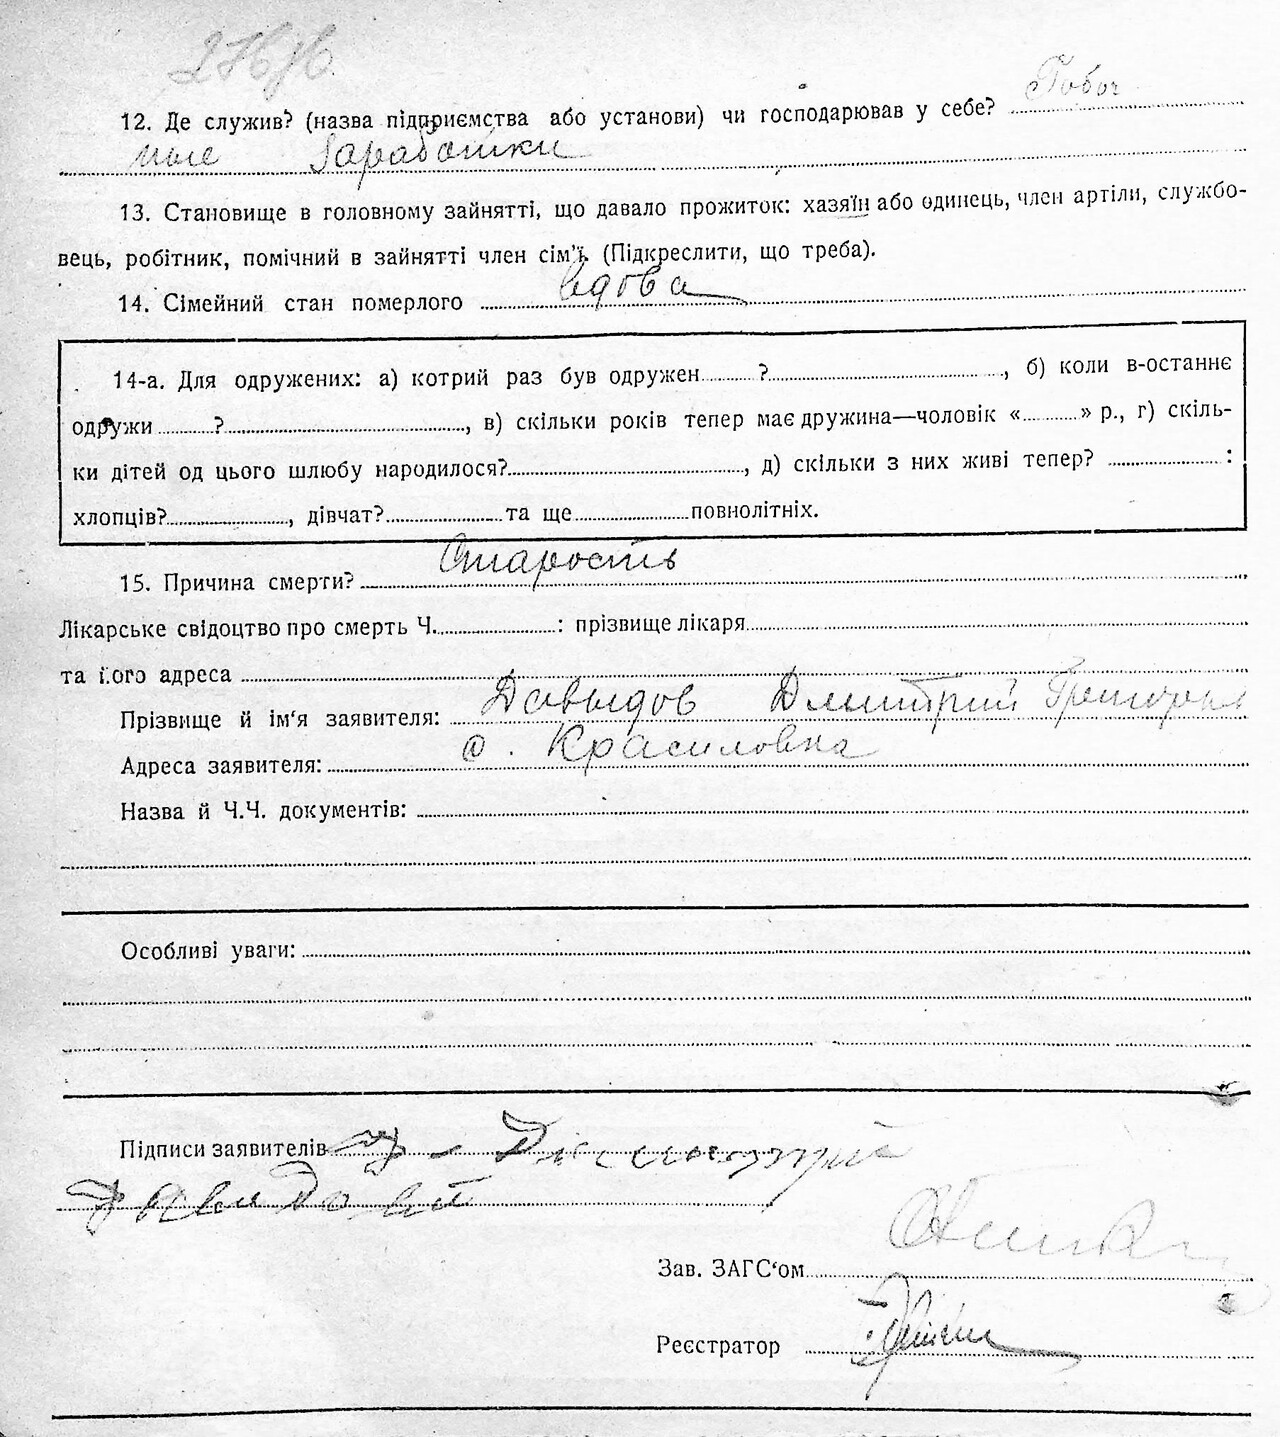 12. Де служив? (назва підприємства або установи) чи господарював у себе? Побоч
ные заработки
13. Становище в головному зайнятті, що давало прожиток: хазяїн або одинець, член артіли, службо-
вець, робітник, помічний в зайнятті член сім'ї. (Підкреслити, що треба).
14. Сімейний стан померлого вдова
14-а. Для одружених: а) котрий раз був одружен ?, б) коли в-останнє
одружи ?, в) скільки років тепер має дружина—чоловік « » р., г) скіль-
ки дітей од цього шлюбу народилося?, д) скільки з них живі тепер? :
хлопців?, дівчат? та ще повнолітніх.
15. Причина смерти? Старость
Лікарське свідоцтво про смерть Ч. : прізвище лікаря
та його адреса
Прізвище й ім'я заявителя: Давыдов Дмитрий
Адреса заявителя: с. Красиловка
Назва й Ч.Ч. документів:
Особливі уваги:
Підписи заявителів
Зав. ЗАГС'ом
Реєстратор